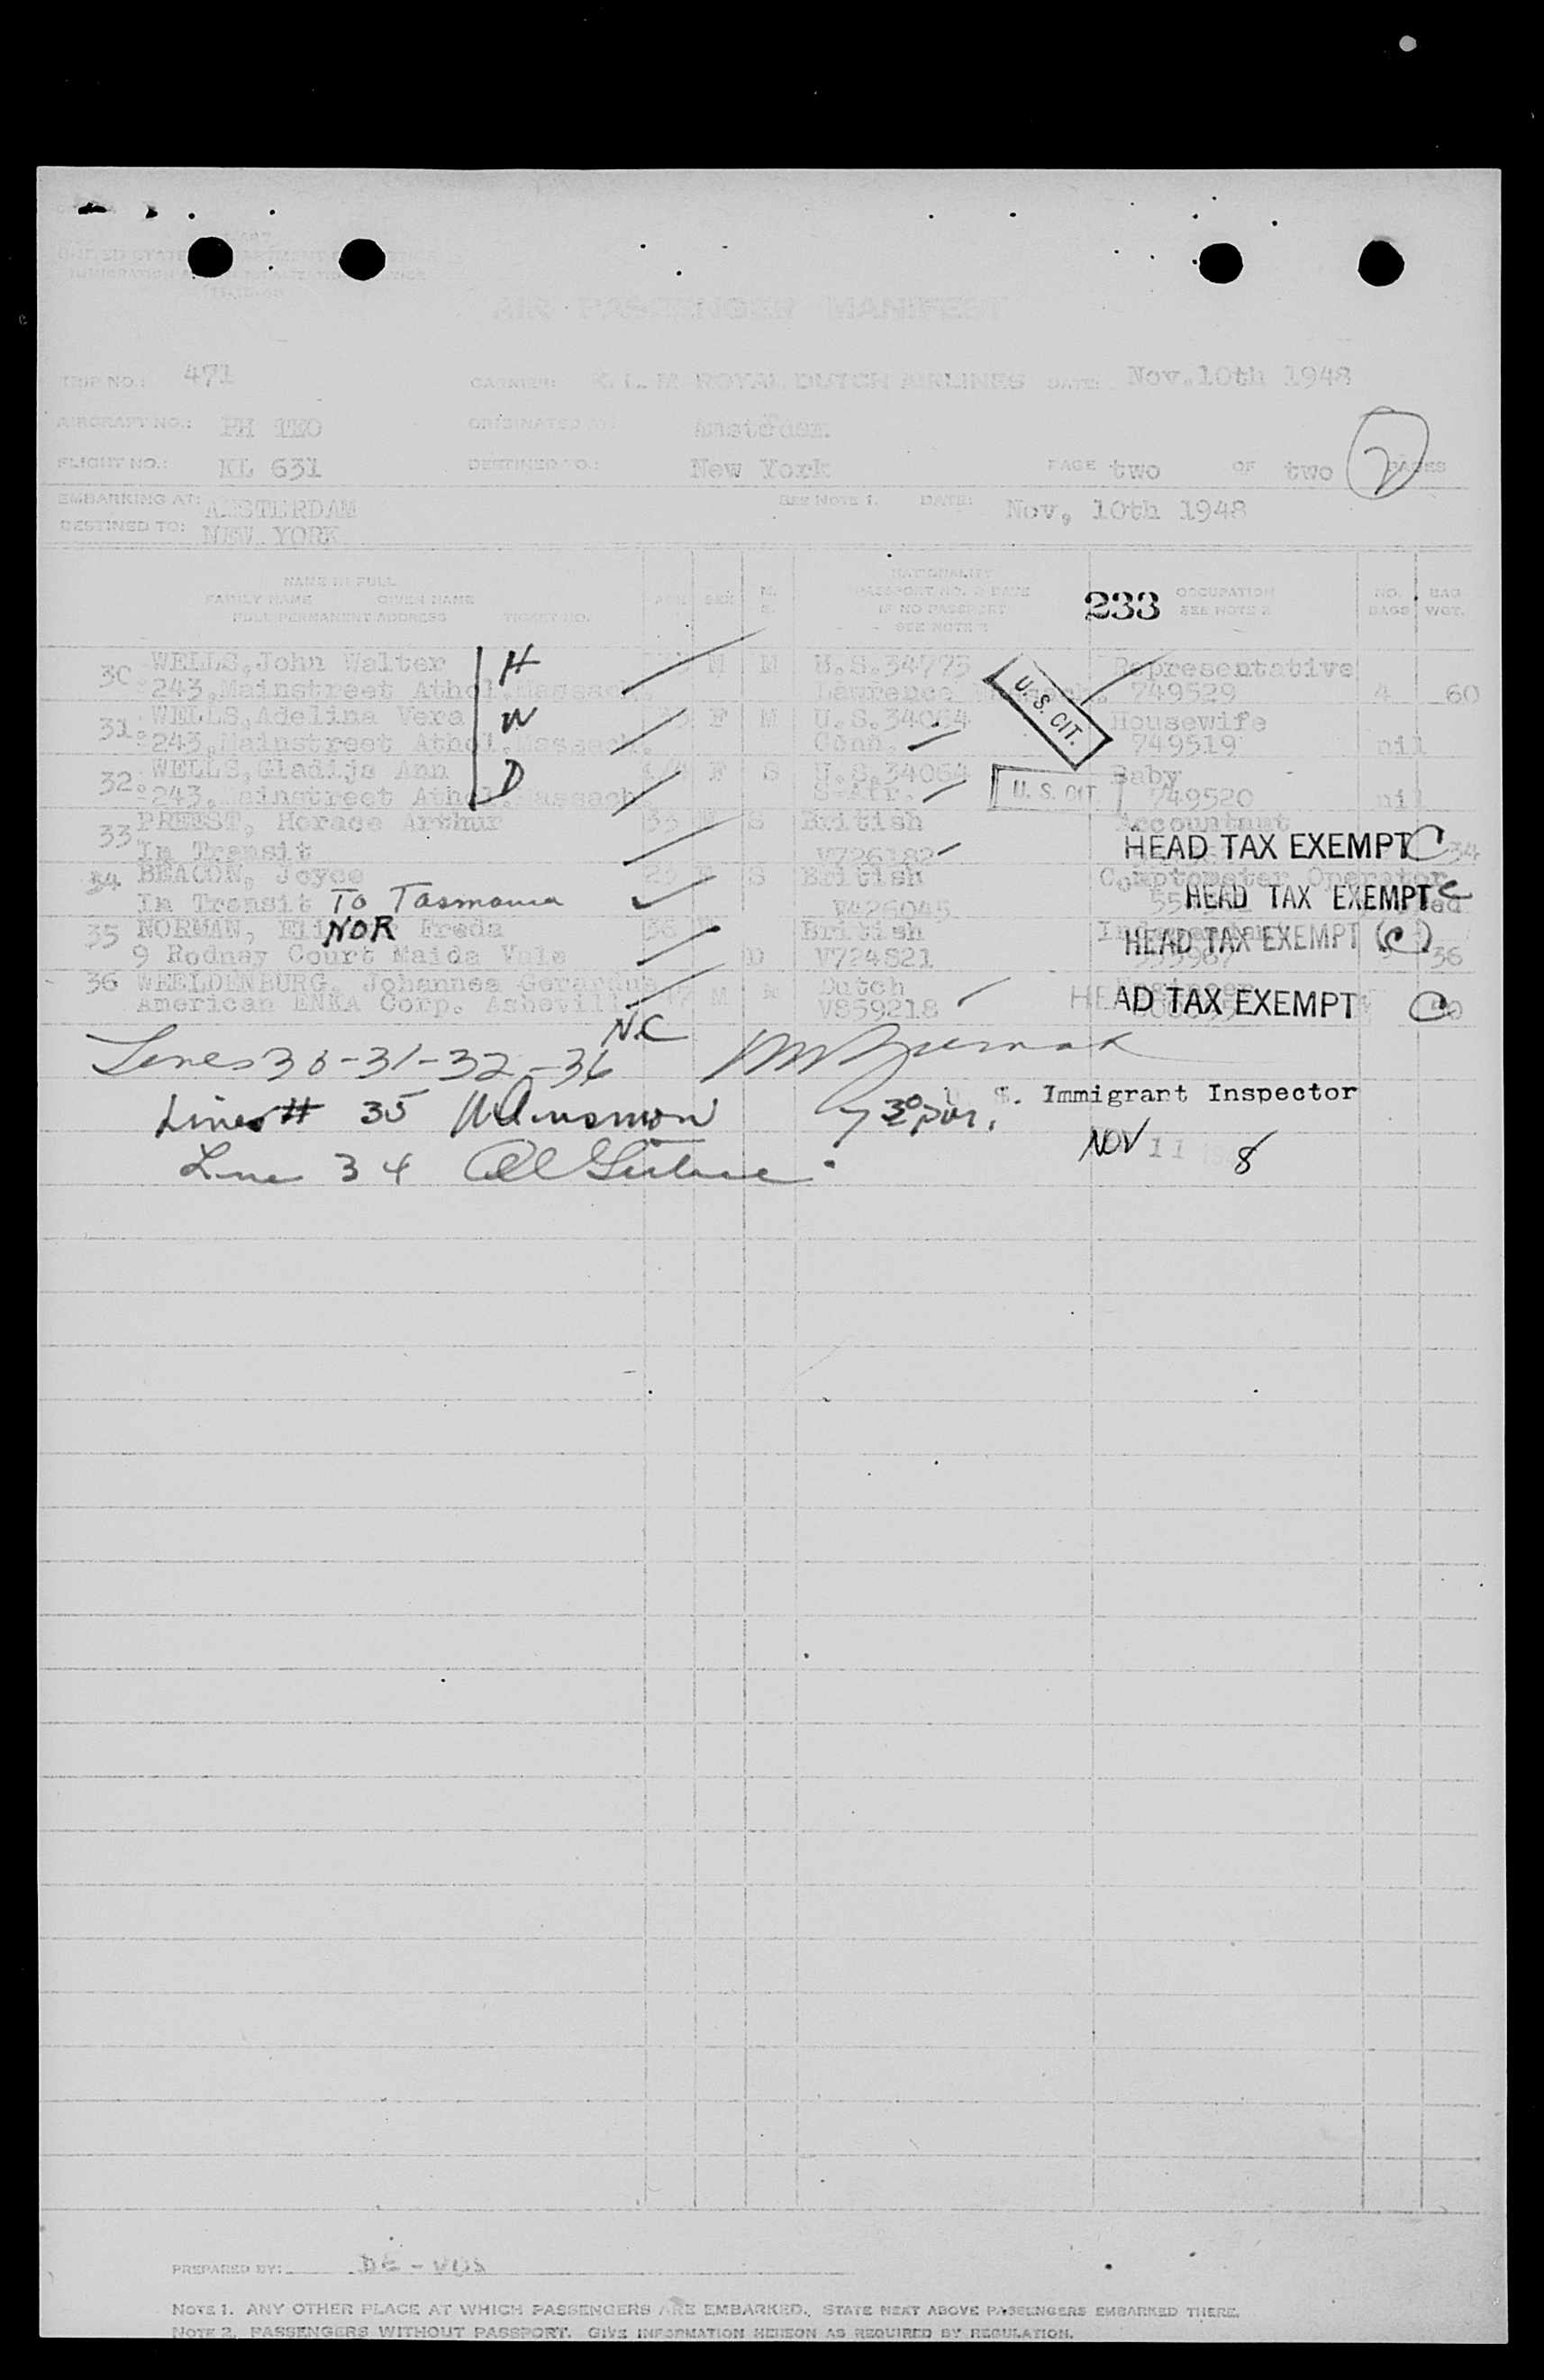 AIR PASSENGER MANIFEST
TRIP NO.: 471 CARRIER: K. L. M ROYAL DUTCH AIRLINES DATE: Nov.10th 1948
AIRCRAFT NO.: PH TEO ORIGINATED AT: Amsterdam.
FLIGHT NO.: KL 631 DESTINED TO.: New York PAGE two OF two PAGES 2
EMBARKING AT: AMSTERDAM SEE NOTE 1. DATE: Nov, 10th 1948
DESTINED TO: NEW YORK
NAME IN FULL
FAMILY NAME GIVEN NAME
FULL PERMANENT ADDRESS TICKET NO.
AGE SEX M. S.
NATIONALITY
PASSPORT NO. & DATE
IF NO PASSPORT
SEE NOTE 2
233 OCCUPATION
SEE NOTE 2
NO. BAGS
BAG WGT.
30 WELLS,John Walter H M M U.S.34775 Representative
243,Mainstreet Athol,Massach. Lawrence 749529 4 60
U. S. CIT.
31. WELLS,Adelina Vera W F M U.S.34064 Housewife
243,Mainstreet Athol,Massach. Conn. 749519 nil
32. WELLS,Gladijs Ann D F S U.S.34064 Baby
243,Mainstreet Athol,Massach. S-Afr. U. S. CIT. 749520 nil
33 PREEST, Horace Arthur 35 M S British Accountant
In Transit V726182 HEAD TAX EXEMPT C 34
34 BEACON, Joyce F S British Comptometer Operator
In Transit To Tasmania V426045 HEAD TAX EXEMPT C
35 NORMAN, Eli NOR Freda 36 British
9 Rodnay Court Maida Vale D V724821 HEAD TAX EXEMPT (C) 36
36 WEELDENBURG, Johannes Gerardus M M Dutch
American ENKA Corp. Asheville N.C V859218 HEAD TAX EXEMPT C
Lines 30-31-32-36
U. S. Immigrant Inspector
Lines # 35 730 pm.
NOV 11 8
Line 34
PREPARED BY: DE-VOS
NOTE 1. ANY OTHER PLACE AT WHICH PASSENGERS ARE EMBARKED, STATE NEXT ABOVE PASSENGERS EMBARKED THERE.
NOTE 2. PASSENGERS WITHOUT PASSPORT. GIVE INFORMATION HEREON AS REQUIRED BY REGULATION.